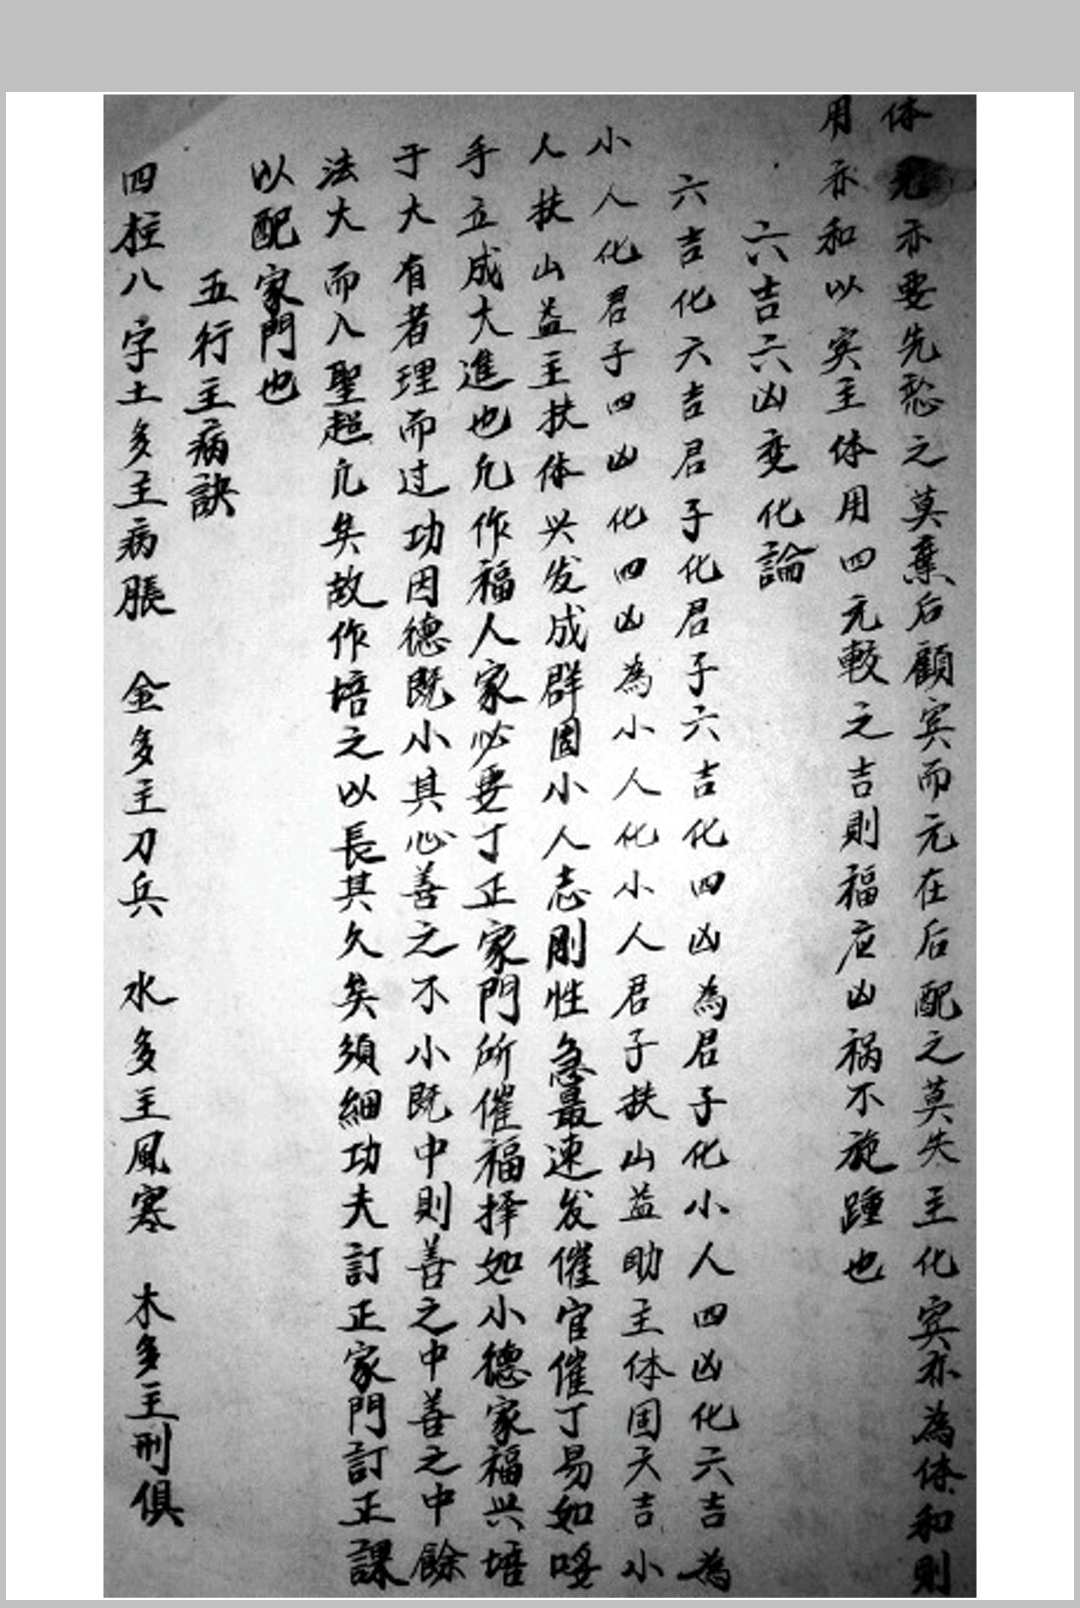 体元亦要先愁之莫棄后顧宾而元在后配之莫失主化宾亦為体和則
用亦和以宾主体用四元較之吉則福应凶祸不旋踵也
六吉六凶变化論
六吉化六吉君子化君子六吉化四凶為君子化小人四凶化六吉為
小人化君子四凶化四凶為小人化小人君子扶山益助主体固大吉小
人扶山益主扶体兴发成群固小人志剛性急最速发催官催丁易如
手立成大進也凢作福人家必要丁正家門所催福择如小德家福兴培
于大有者理而过功因德既小其心善之不小既中則善之中善之中餘
法大而入聖超凢矣故作培之以長其久矣須細功夫訂正家門訂正課
以配家門也
五行主病訣
四柱八字土多主病脹 金多主刀兵 水多主風寒 木多主刑俱